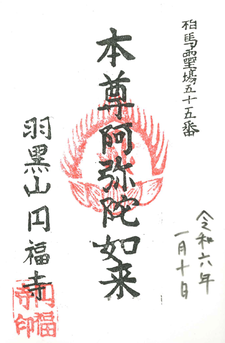 相馬霊場五十五番
本尊阿弥陀如来
羽黒山円福寺
円福
寺印
令和六年
一月十日